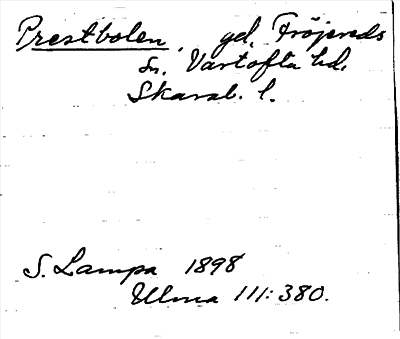 Prestbolen, gd, Fröjereds
sn. Vartofta hd.
Skarab. l.
S. Lampa 1898
Ulma 111:380.